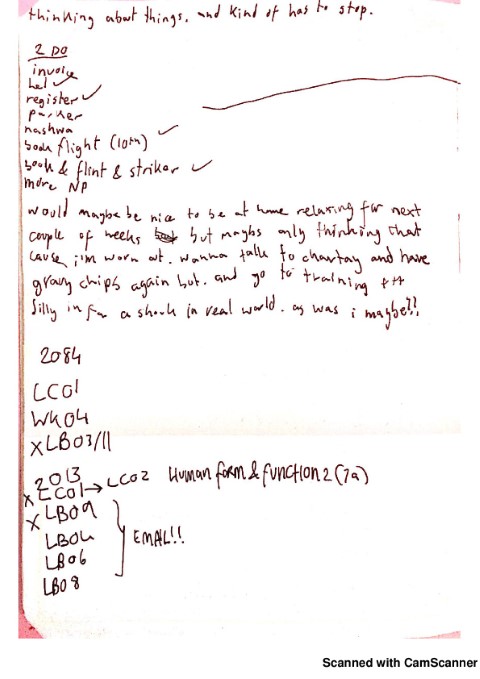 thinking about things. and kind of has to stop.
2 DO
invoice
hel ✓
register ✓
nashwa
book flight (10th) ✓
book & flint & striker ✓
more NP
would maybe be nice to be at home relaxing for next
couple of weeks but maybs only thinking that
cause i'm worn out. wanna talk to chantay and have
gravy chips again but. and go to training
silly in for a shock in real world. as was i maybe!!
2084
LC01
WK04
XLB03/11
2013
X LC01→LC02 Human form & function 2 (7a)
X LB09
LB04 EMAIL!!
LB06
LB08
Scanned with CamScanner